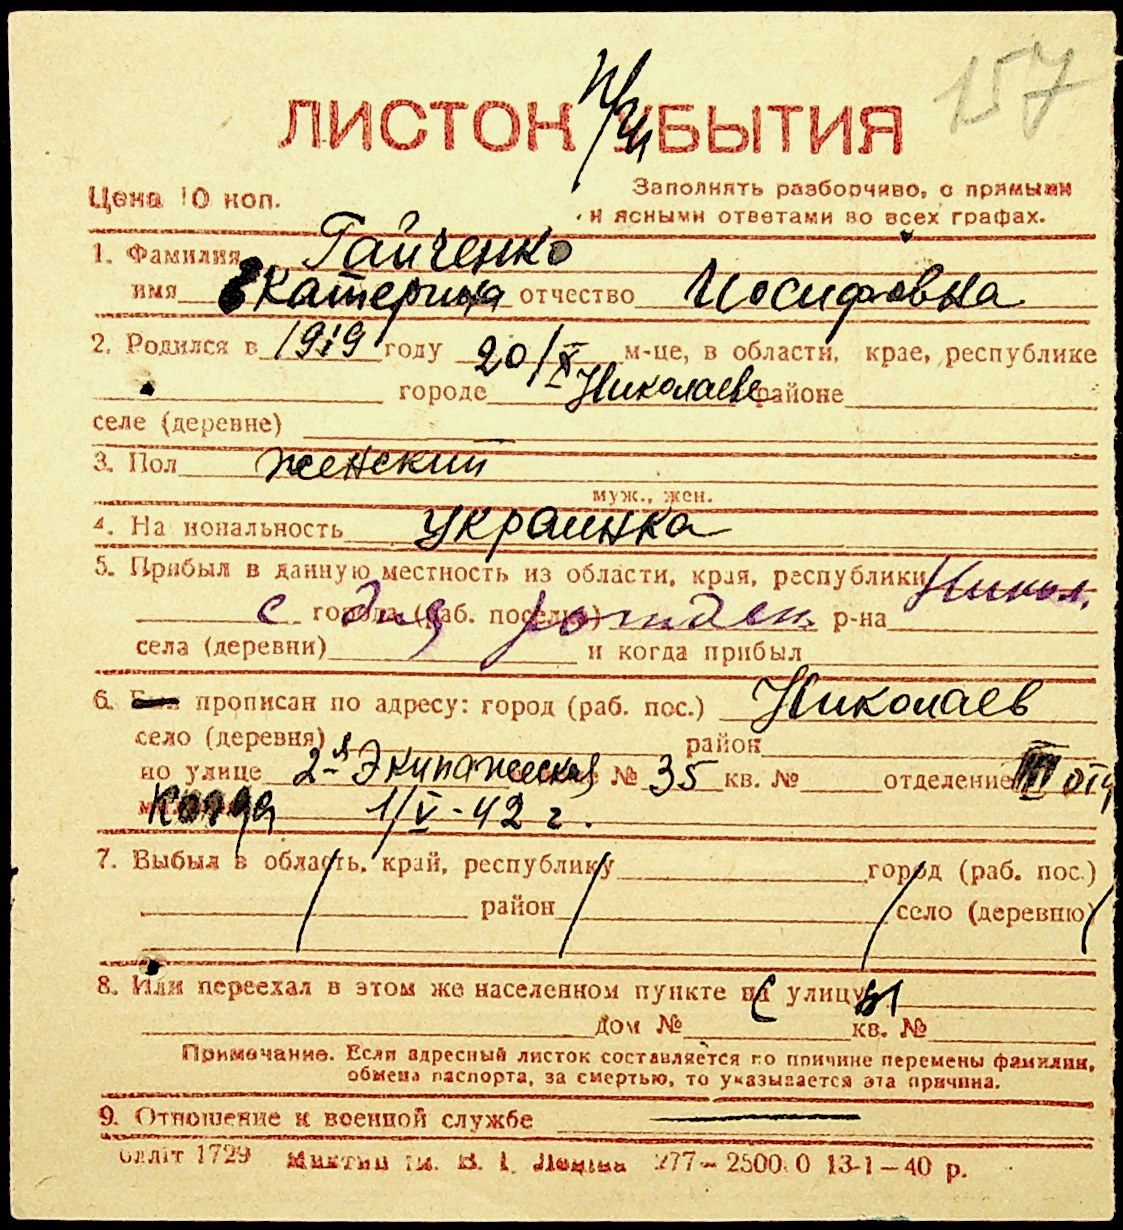 157
ЛИСТОК УБЫТИЯ
Цена 10 коп.
Заполнять разборчиво, с прямыми
и ясными ответами во всех графах.
1. Фамилия Гайченко
имя Екатерина отчество Иосифовна
2. Родился в 1919 году 20/X м-це, в области, крае, республике
городе Николаеве районе
селе (деревне)
3. Пол женский
муж., жен.
4. На иональность украинка
5. Прибыл в данную местность из области, края, республики Никол.
с города (раб. поселка) дня рожден. р-на
села (деревни) и когда прибыл
6. прописан по адресу: город (раб. пос.) Николаев
село (деревня) район
по улице 2-я Экипажеская № 35 кв. № отделение III отд
Когда 1/V-42 г.
7. Выбыл в область, край, республику город (раб. пос.)
район село (деревню)
8. Или переехал в этом же населенном пункте на улицу
дом № кв. №
Примечание. Если адресный листок составляется по причине перемены фамилии,
обмена паспорта, за смертью, то указывается эта причина.
9. Отношение к военной службе
Обліт 1729 ім. В. І. Леніна 277—2500.0 13-1—40 р.